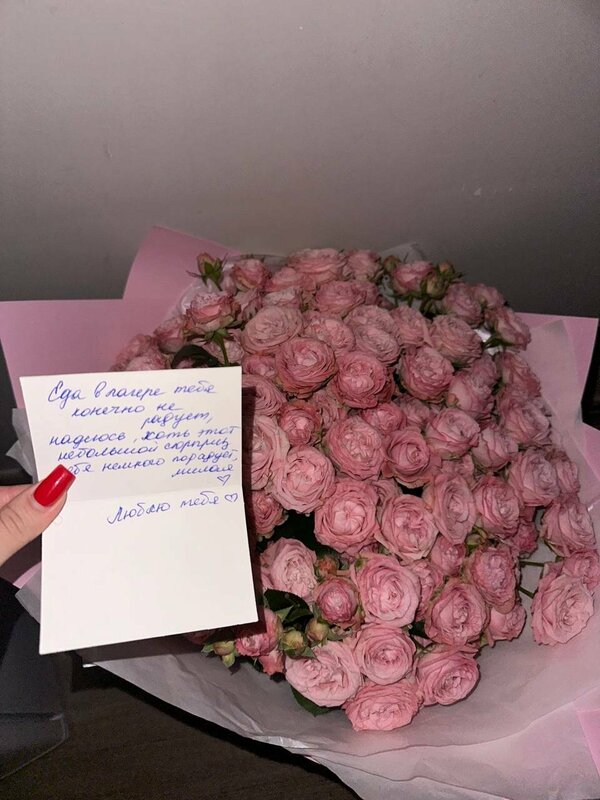 Еда в лагере тебя
конечно не
радует,
надеюсь, хоть этот
небольшой сюрприз
тебя немного порадует,
милая ♡
Люблю тебя ♡